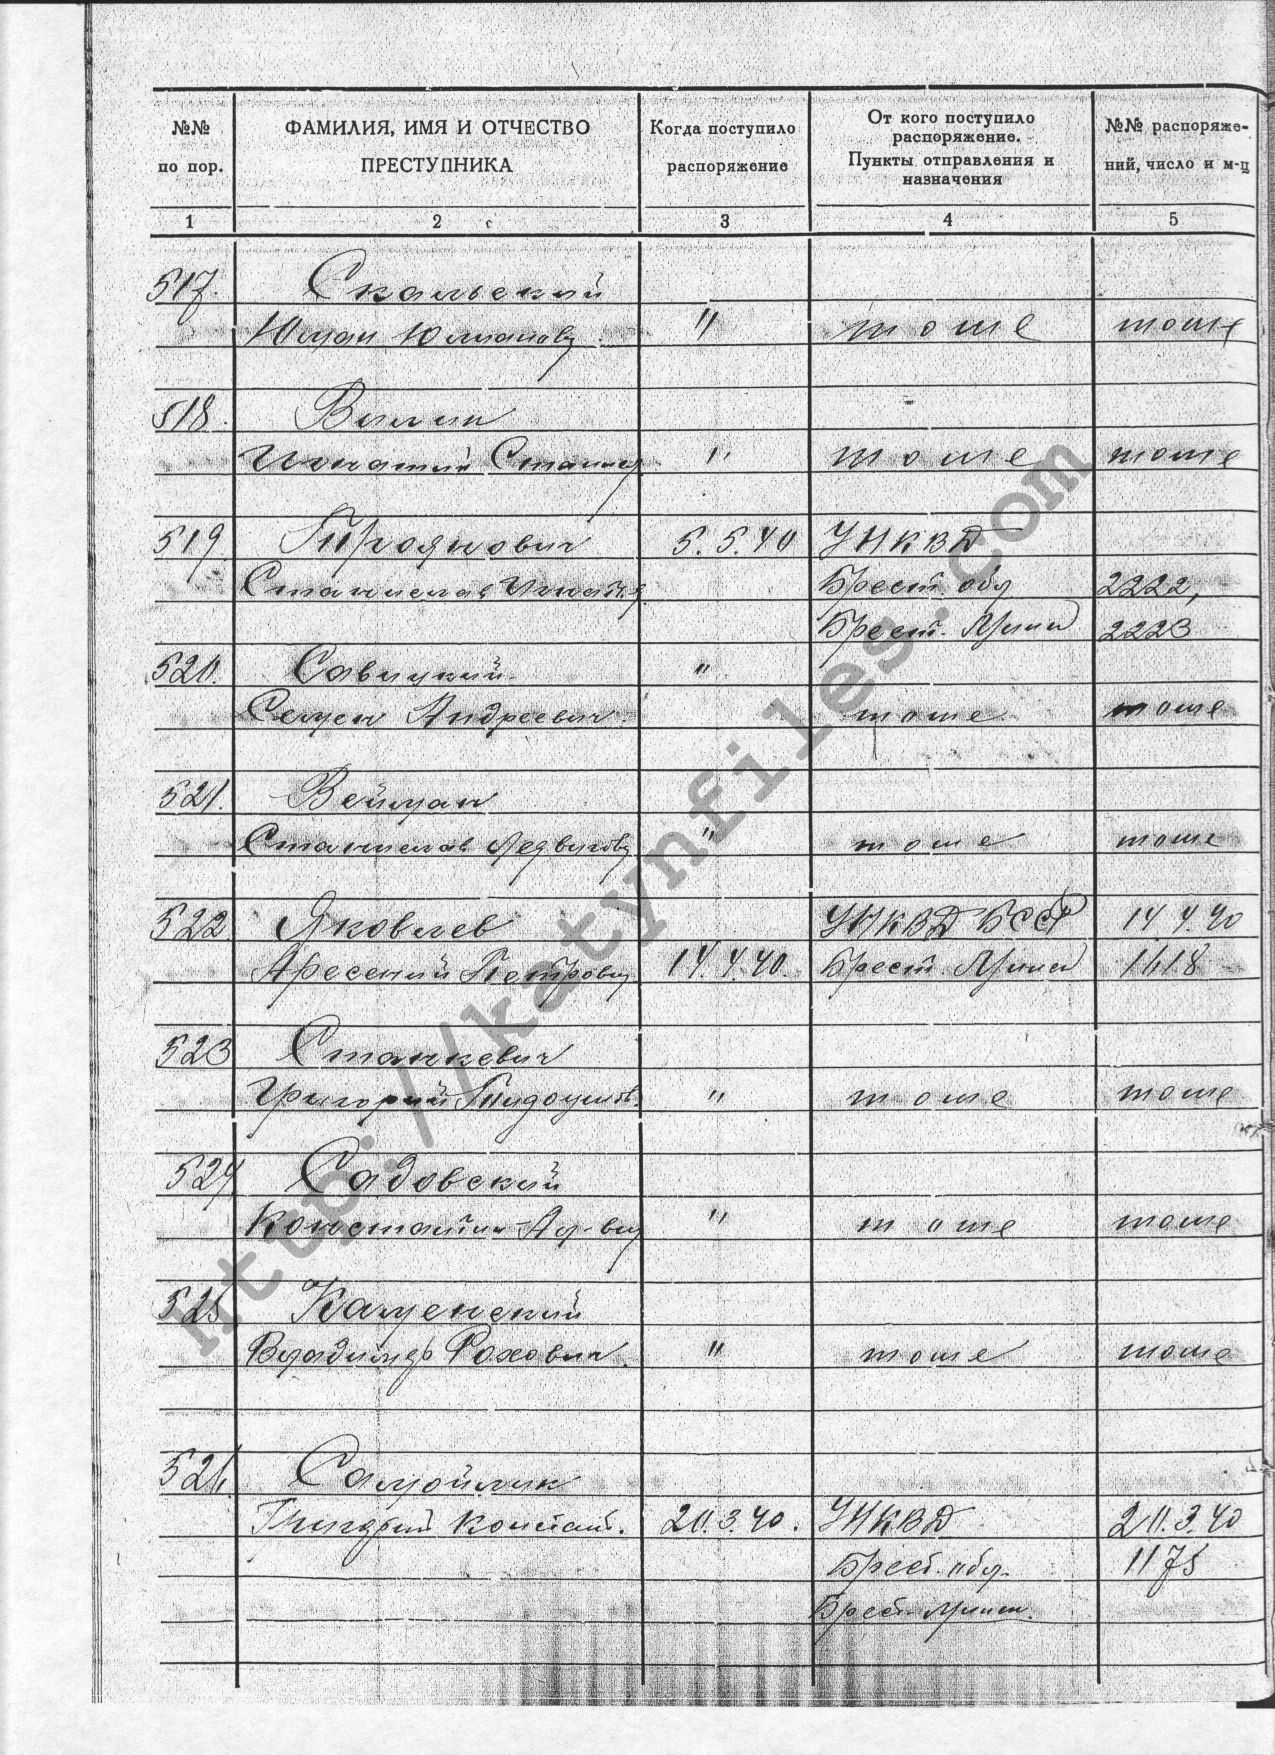 №№ по пор.
ФАМИЛИЯ, ИМЯ И ОТЧЕСТВО ПРЕСТУПНИКА
Когда поступило распоряжение
От кого поступило распоряжение. Пункты отправления и назначения
№№ распоряжений, число и м-ц
1 2 3 4 5
517. Скальский
Юлиан Юлианов " тоже тоже
518.
Игнатий Станисл " тоже тоже
519 Троянович 5.5.40 УНКВД
Станислав Игнат Брест. обл 2222,
Брест. Минск 2223
520. Савицкий "
Семен Андреевич тоже тоже
521. Вейман
Станислав " тоже тоже
522 Яковлев УНКВД БССР 14 4.40
Арсений Петрович 14.4.40. Брест. Минск 1618
523 Станкевич
Григорий " тоже тоже
524 Садовский
Константин " тоже тоже
525 Каменский
Владимир Рохович. " тоже тоже
526. Самойлик
Григорий Констат. 20.3.40. УНКВД 20.3.40
Брест. обл. 1175
Брест-Минск.
http://katynfiles.com